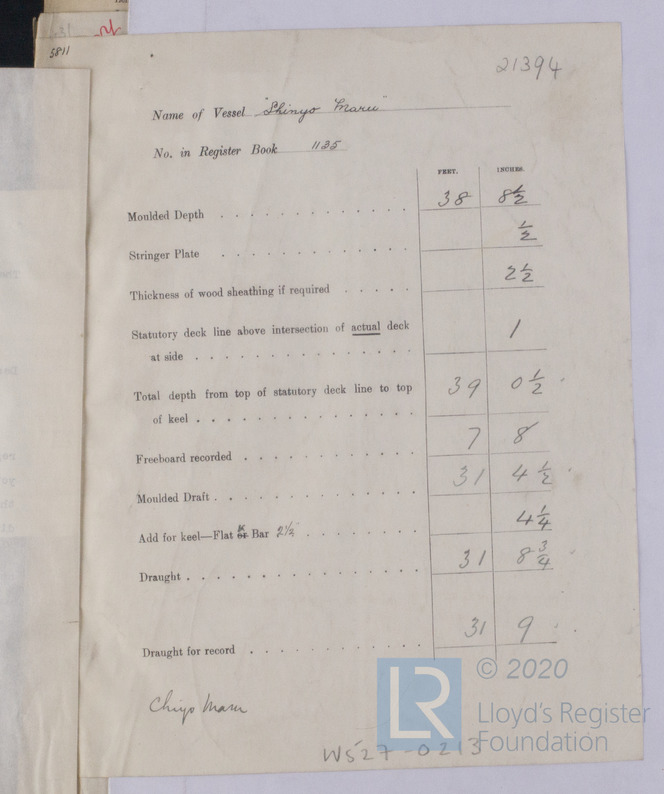 5811
21394
Name of Vessel "Shinyo Maru"
No. in Register Book 1135
FEET. INCHES.
Moulded Depth . . . . . . . . . . . . . 38 8½
Stringer Plate . . . . . . . . . . . . ½
Thickness of wood sheathing if required . . . . . 2½
Statutory deck line above intersection of actual deck
at side . . . . . . . . . . . . . . 1
Total depth from top of statutory deck line to top 39 0½
of keel . . . . . . . . . . . . . .
Freeboard recorded . . . . . . . . . . . 7 8
Moulded Draft . . . . . . . . . . . . . 31 4½
Add for keel—Flat & or Bar 2½ . . . . . . . . 4¼
Draught . . . . . . . . . . . . . . . 31 8¾
Draught for record . . . . . . . . . . . 31 9
Chiyo Maru
LR © 2020
Lloyd's Register
Foundation
W527-0213